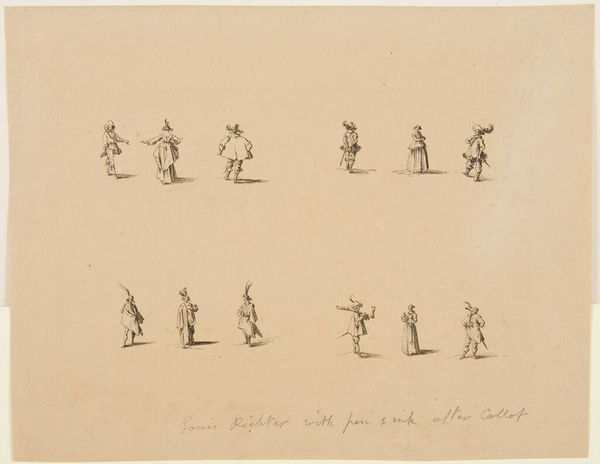 Louis Righter with pen & ink after Callot